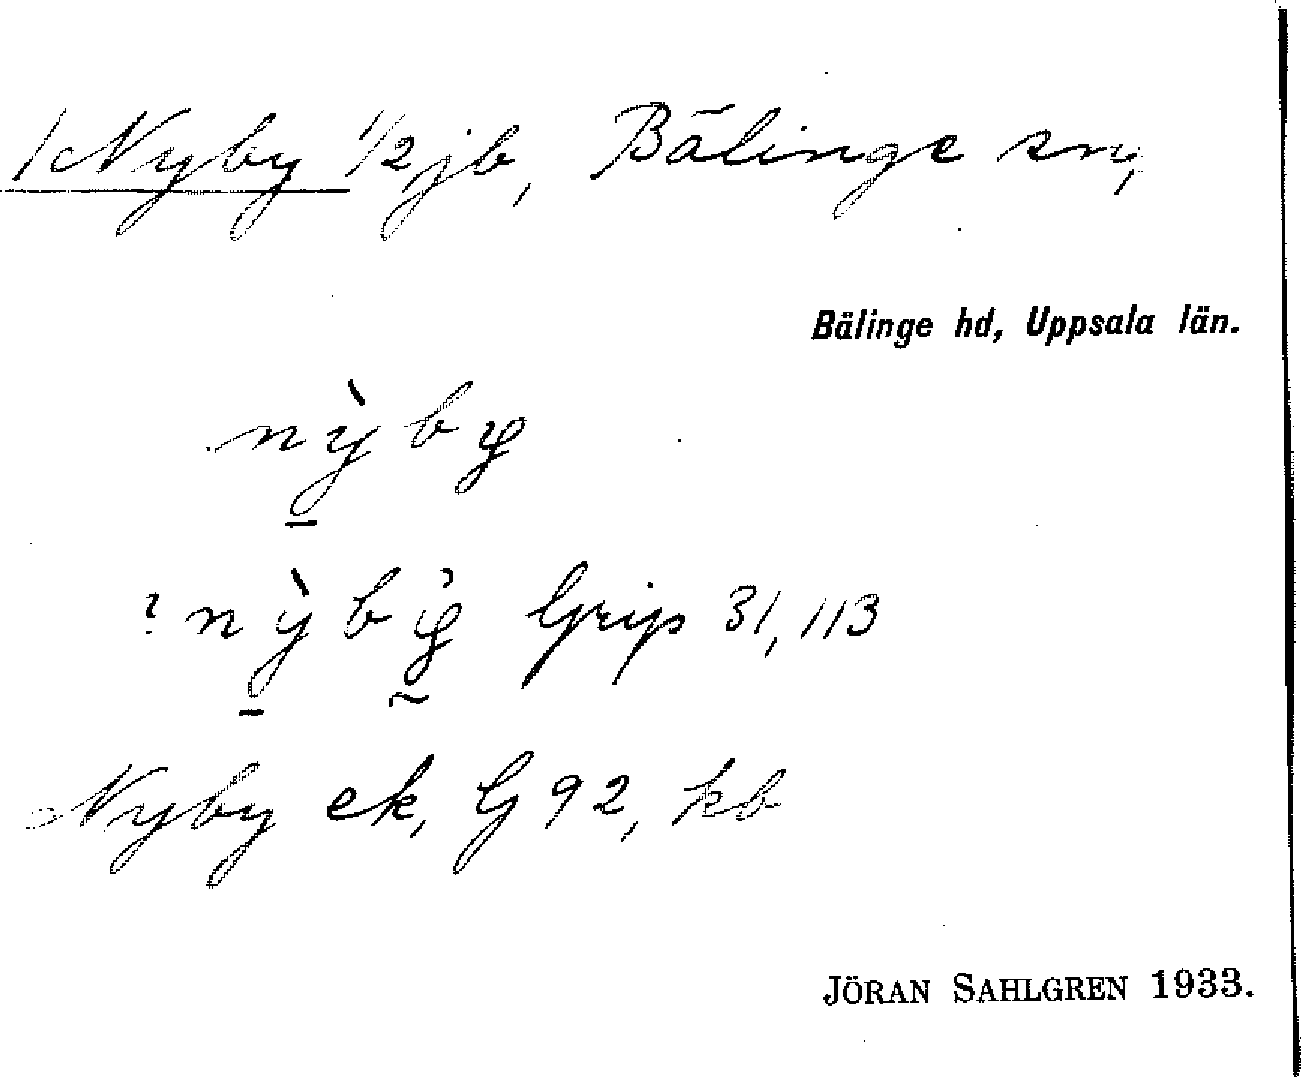 1 Nyby 1/2 jb, Bälinge sn,
Bälinge hd, Uppsala län.
nỳby
? nỳby̓ Grip 31, 113
Nyby ek, G 92, kb
JÖRAN SAHLGREN 1933.